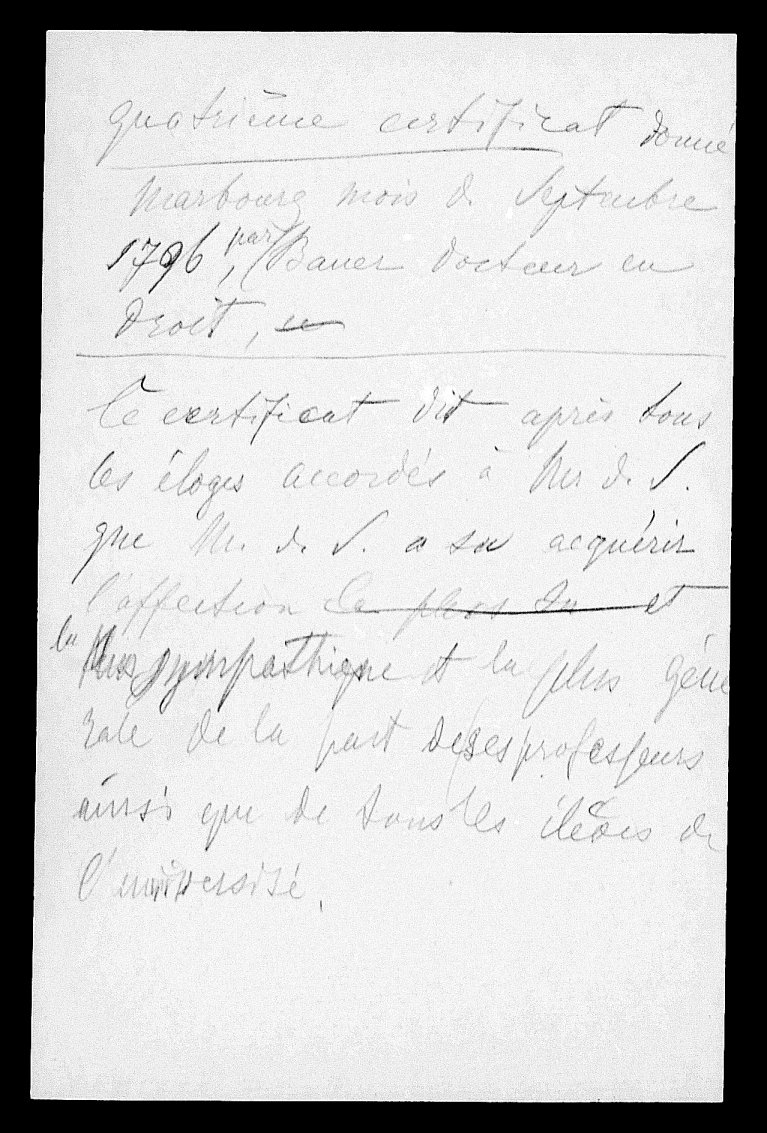 quatrième certificat donné
Marbourg mois de Septembre
1796, par (Bauer docteur en
droit, ce
Ce certificat dit après tous
les éloges accordés à Mr d. S.
que Mr. d. S. a su acquérir
l'affection la plus et
la plus sympathique et la plus géné
rale de la part de ses professeurs
ainsi que de tous les élèves de
l'université.